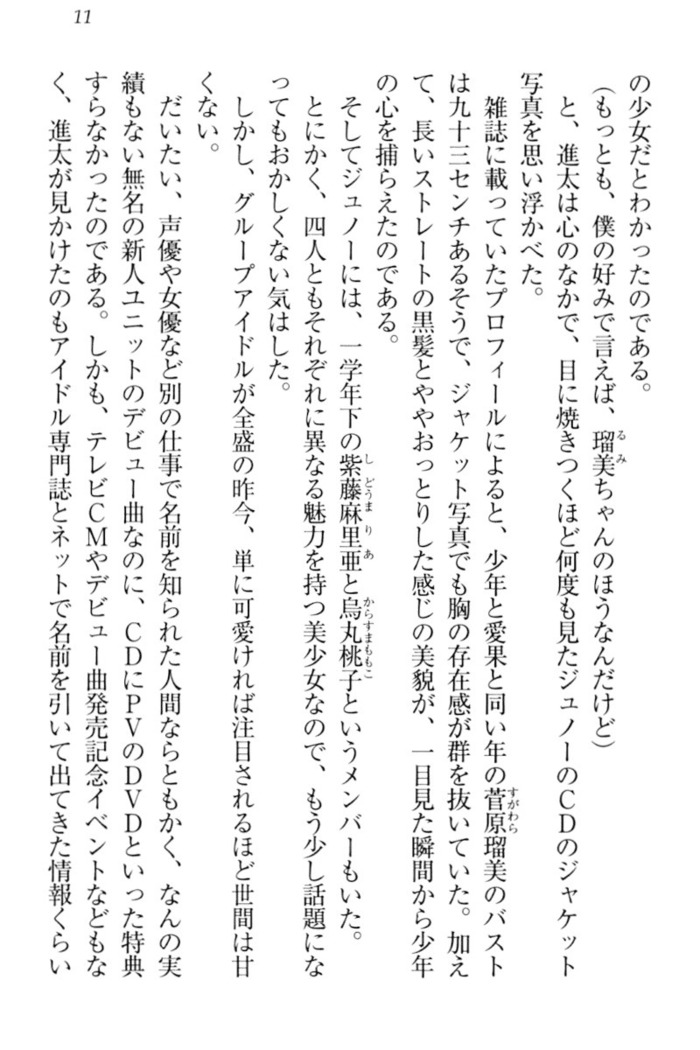 11
の少女だとわかったのである。
(もっとも、僕の好みで言えば、瑠美ちゃんのほうなんだけど)
と、進太は心のなかで、目に焼きつくほど何度も見たジュノーのCDのジャケット
写真を思い浮かべた。
雑誌に載っていたプロフィールによると、少年と愛果と同い年の菅原瑠美のバスト
は九十三センチあるそうで、ジャケット写真でも胸の存在感が群を抜いていた。加え
て、長いストレートの黒髪とややおっとりした感じの美貌が、一目見た瞬間から少年
の心を捕らえたのである。
そしてジュノーには、一学年下の紫藤麻里亜と烏丸桃子というメンバーもいた。
とにかく、四人ともそれぞれに異なる魅力を持つ美少女なので、もう少し話題にな
ってもおかしくない気はした。
しかし、グループアイドルが全盛の昨今、単に可愛ければ注目されるほど世間は甘
くない。
だいたい、声優や女優など別の仕事で名前を知られた人間ならともかく、なんの実
績もない無名の新人ユニットのデビュー曲なのに、CDにPVのDVDといった特典
すらなかったのである。しかも、テレビCMやデビュー曲発売記念イベントなどもな
く、進太が見かけたのもアイドル専門誌とネットで名前を引いて出てきた情報くらい